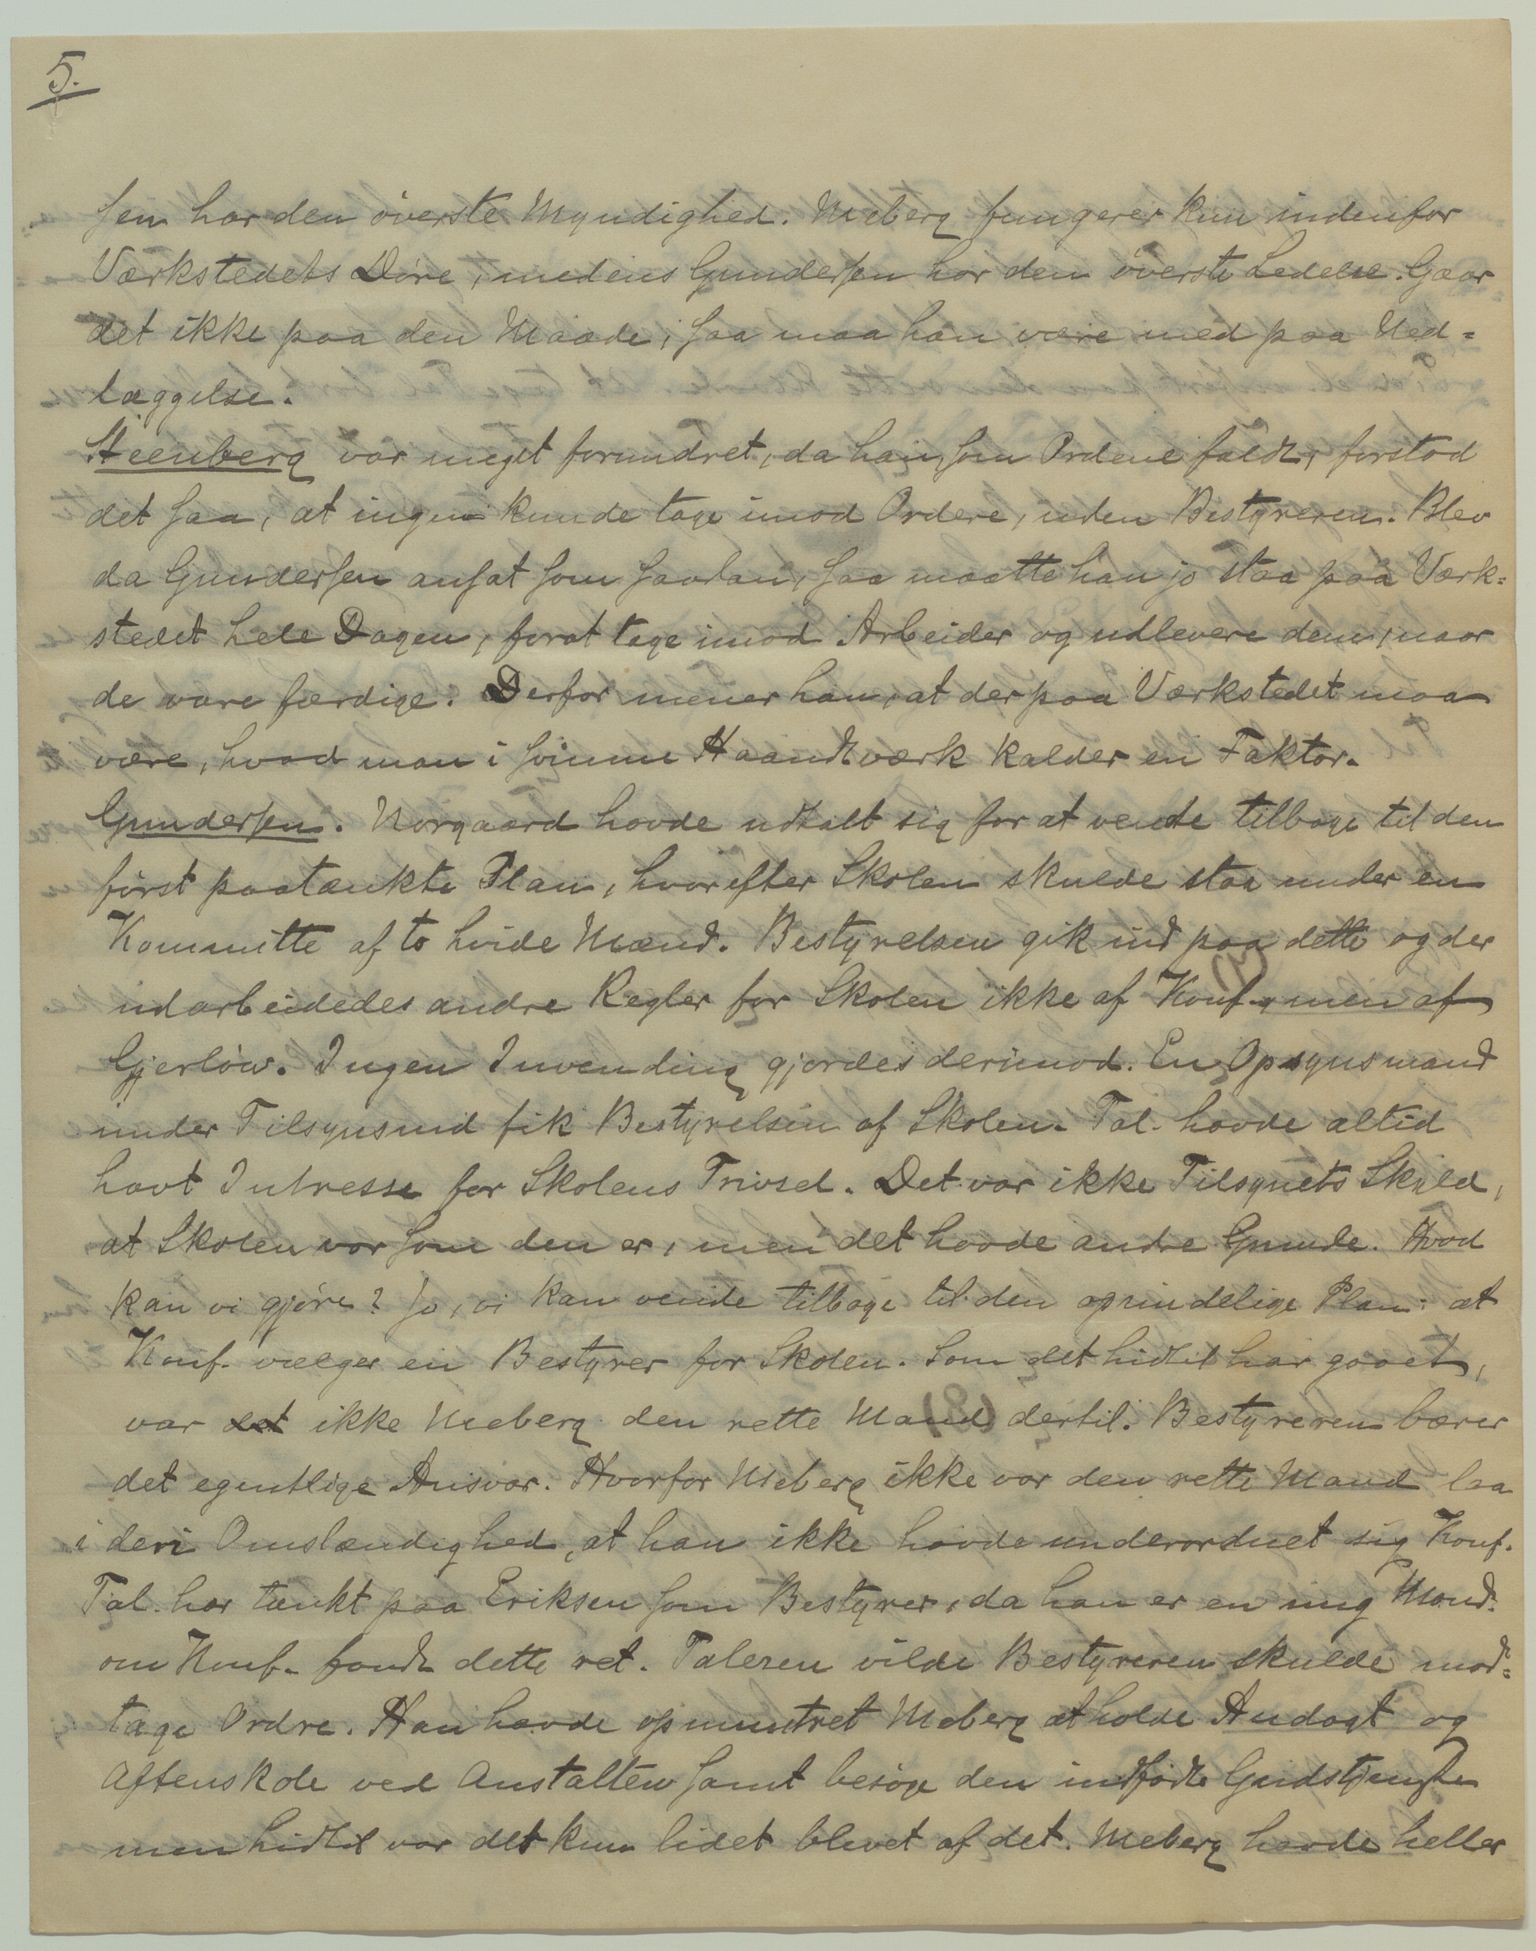 5.
sen har den øverste Myndighed. Meberg fungerer kun indenfor
Værkstedets Døre, medens Gundersen har den øverste Ledelse. Gaar
det ikke paa den Maade, saa maa han være med paa Ned-
læggelse.
Steenberg var meget forundret, da han, som Ordene faldt, forstod
det saa, at ingen kunde tage imod Ordere, uden Bestyreren. Blev
da Gundersen ansat som saadan, saa maatte han jo staa paa Værk-
stedet hele Dagen, forat tage imod Arbeider og udlevere dem, naar
de vare færdige. Derfor mener han, at der paa Værkstedet maa
være, hvad man i samme Haandværk kalder en Faktor.
Gundersen. Norgaard havde udtalt sig for at vende tilbage til den
først paatænkte Plan, hvorefter Skolen skulde staa under en
Kommitte af to hvide Mænd. Bestyrelsen gik ind paa dette og der
udarbeidedes andre Regler for Skolen ikke af Konf., men af
Gjerløw. Ingen Invending gjordes derimod. En Opsynsmand
under Tilsynsmd fik Bestyrelsen af Skolen. Tal. havde altid
havt Intresse for Skolens Trivsel. Det var ikke Tilsynets Skyld,
at Skolen var som den er, men det havde andre Grunde. Hvad
kan vi gjøre? Jo, vi kan vende tilbage til den oprindelige Plan: at
Konf. vælger en Bestyrer for Skolen. Som det hidtil har gaaet,
var det ikke Meberg den rette Mand dertil. Bestyreren bærer
det egentlige Ansvar. Hvorfor Meberg ikke var den rette Mand laa
i den Omstændighed, at han ikke havde underordnet sig Konf.
Tal. har tænkt paa Eriksen som Bestyrer, da han er en ung Mand.
om Konf. fandt dette ret. Taleren vilde Bestyreren skulde mod-
tage Ordre. Han havde opmuntret Meberg at holde Andagt og
Aftenskole ved Anstalten samt besøge den indfødte Gudstjeneste
men hidtil var det kun lidet blevet af det. Meberg havde heller